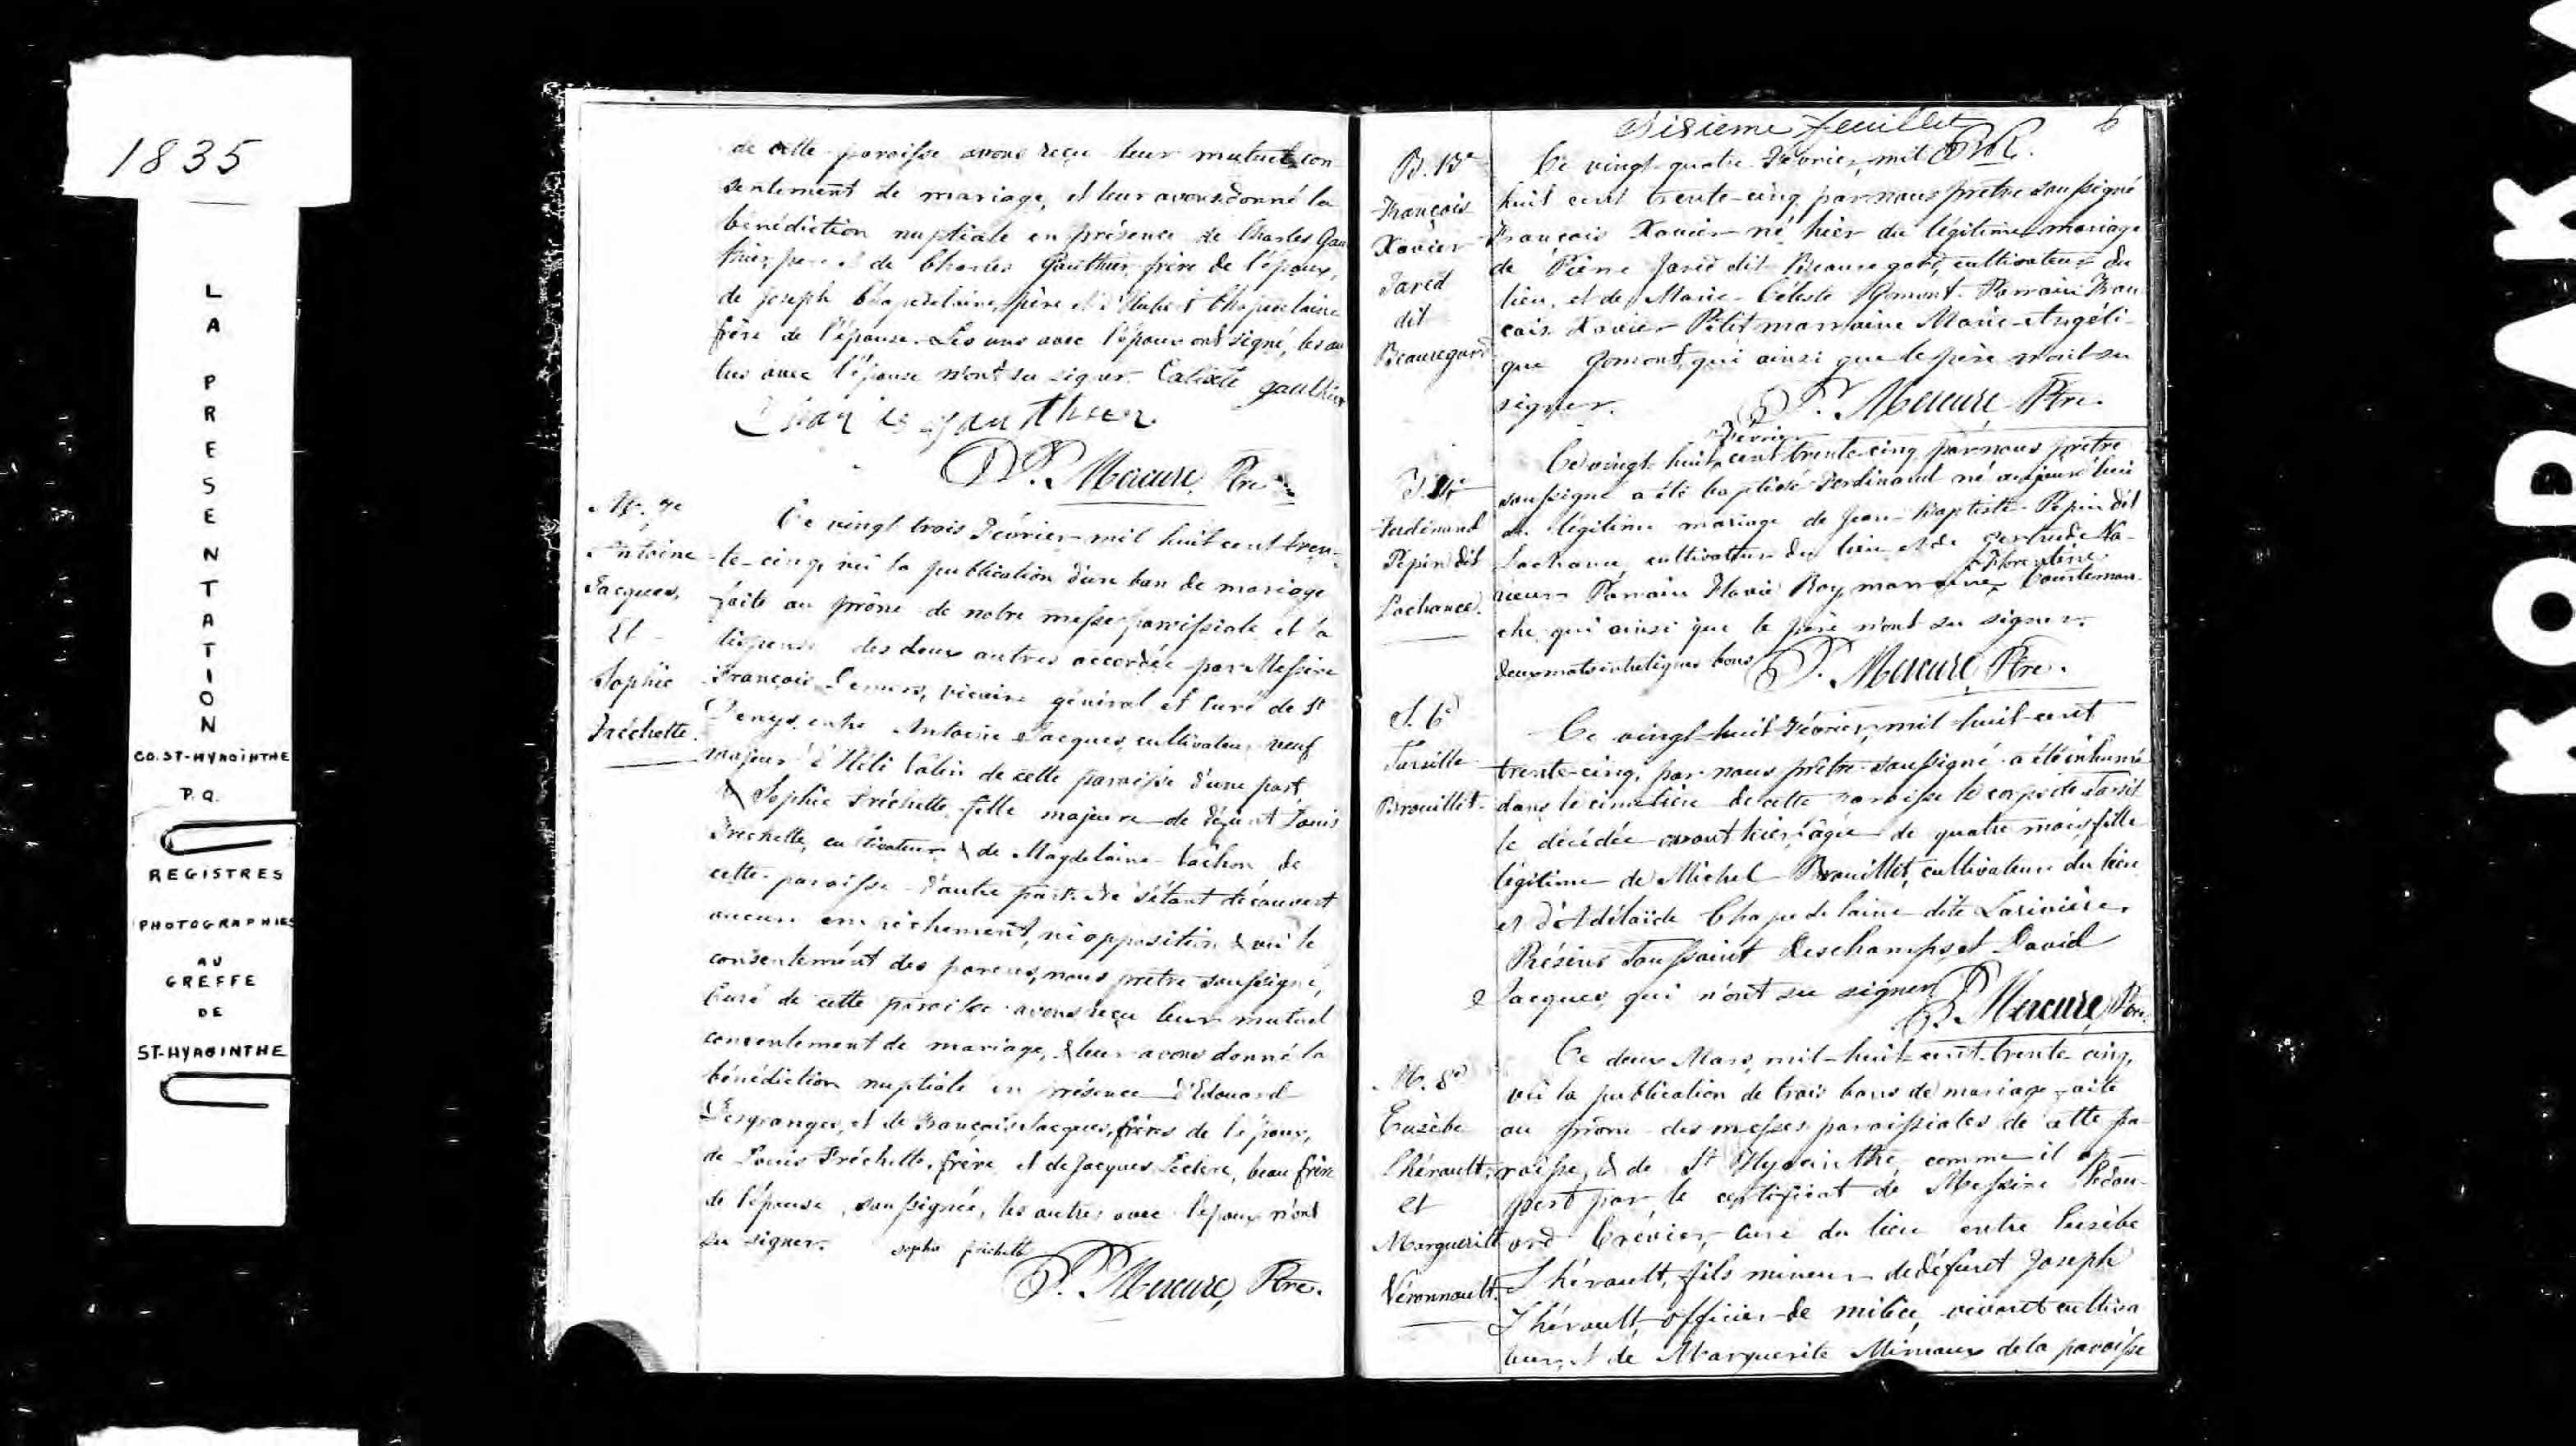 1835
LA PRESENTATION
CO. ST-HYACINTHE
P.Q.
REGISTRES
PHOTOGRAPHIES
AU
GREFFE
DE
ST-HYACINTHE
de cette paroisse avons reçu leur mutuel con
sentement de mariage, et leur avons donné la
bénédiction nuptiale en présence de Charles Gau
thier, père et de Charles Gauthier, frère de l'époux,
de Joseph Chapdelaine, père et d'Hubert Chapdelaine
frère de l'épouse. Les uns avec l'époux ont signé, les au
tres avec l'épouse n'ont su signer. Calixte gauthier
gauthier
P. Mercure, Ptre
M. 7e
Antoine
Jacques,
Et
Sophie
Fréchette.
Ce vingt trois Février mil huit cent tren-
te-cinq, vû la publication d'un ban de mariage
faite au prône de notre messe paroissiale et la
dispense des deux autres accordée par Messire
François Demers, vicaire général et Curé de St
Denys entre Antoine Jacques, cultivateur, veuf
majeur d'Héli de cette paroisse d'une part
& Sophie Fréchette, fille majeure de défunt Louis
Fréchette, cultivateur & de Magdelaine Vachon de
cette paroisse d'autre part. Ne s'étant découvert
aucun empêchement, ni opposition & vû le
consentement des parens, nous prêtre soussigné,
Curé de cette paroisse avons reçu leur mutuel
consentement de mariage, & leur avons donné la
bénédiction nuptiale en présence d'Edouard
Desgranges, et de François Jacques, frères de l'époux,
de Louis Fréchette, frère et de Jacques Leclerc, beau frère
de l'épouse, soussignée, les autres avec l'époux n'ont
su signer. sophie frichette
P. Mercure, Ptre.
Sisième feuillet 6
B. 13e
François
Xavier
Jared
dit
Beauregard
Ce vingt-quatre Février, mil
huit cent trente-cinq par nous prêtre soussigné
François Xavier né hier du légitime mariage
de Pierre Jared dit Beauregard, cultivateur du
lieu, et de Marie-Céleste Gomont. Parrain Fran
çois Xavier Petit marraine Marie-Angéli-
que Gomont, qui ainsi que le père n'ont su
signer. P. Mercure Ptre.
Février
B. 14e
Ferdinand
Pépin dit
Lachance.
Ce vingt-huit cent trente-cinq par nous prêtre
soussigné a été baptisé Ferdinand né aujourd'hui
du légitime mariage de Jean-Baptiste Pépin dit
Lachance, cultivateur du lieu et de Gertrude
Florentine
Parrain Flavie Roy, marraine Courteman-
che, qui ainsi que le père n'ont su signer.
deux mots bons P. Mercure, Ptre.
S. 6e
Tarsille
Brouillet.
Ce vingt-huit Février, mil huit cent
trente-cinq, par nous prêtre soussigné a été inhumé
dans le cimetière de cette paroisse le corps de Tarsil
le décédée avant hier, âgée de quatre mois fille
légitime de Michel Brouillet, cultivateur du lieu
et d'Adélaïde Chapdelaine dite Larivière.
Présens Toussaint Deschamps, et David
Jacques, qui n'ont su signer. P. Mercure, Ptre.
M. 8e
Eusèbe
Thérault,
et
Marguerite
Véronnault.
Ce deux Mars, mil huit cent trente-cinq,
vû la publication de trois bans de mariage faite
au prône des messes paroissiales de cette pa-
roisse, & de St Hyacinthe, comme il ap-
pert par le certificat de Messire Edou-
ard Crévier, Curé du lieu entre Eusèbe
Thérault, fils mineur de défunt Joseph
Thérault, officier de milice, vivant cultiva
teur, et de Marguerite de la paroisse
KODAK